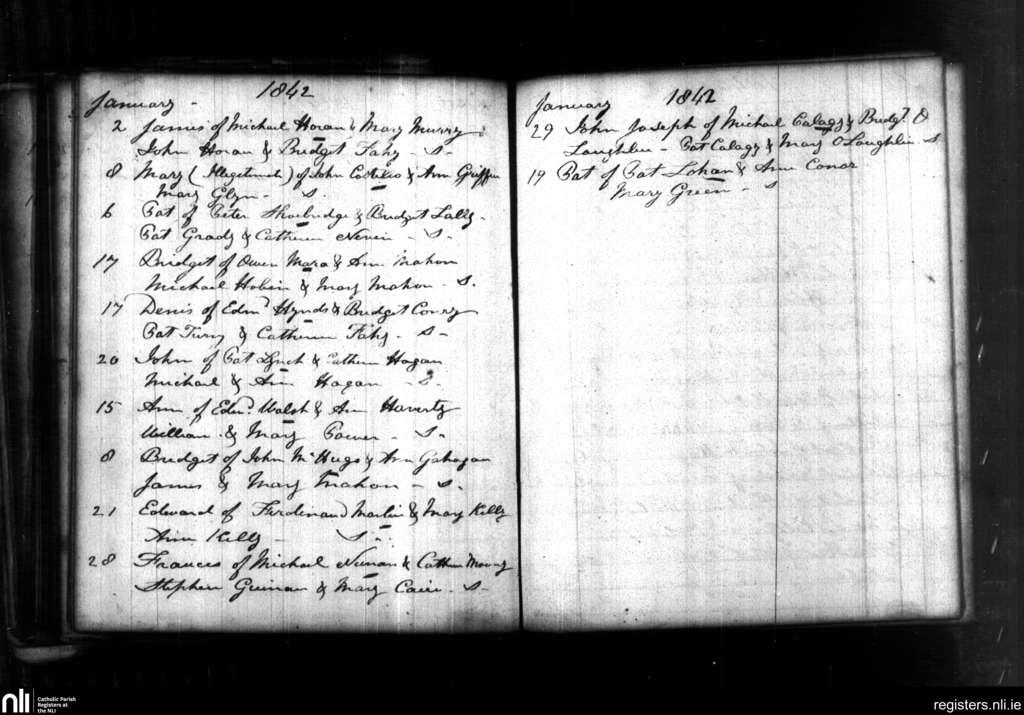 1842
January -
2 James of Michael Horan & Mary Murry
John Horan & Bridget Fahy - S -
8 Mary (Illegitimate) of John Costeleo & Ann Griffin
Mary Glyn - S.
6 Pat of Peter & Bridget Lally -
Pat Grady & Catherine Nevin - S -
17 Bridget of Owen Mara & Ann Mahon
Michael Hobin & Mary Mahon - S.
17 Denis of Edmd Hynds & Bridget Conry
Pat & Catherine Fahy - S -
20 John of Pat Lynch & Cathern Hogan
Michael & Ann Hogan - S.
15 Ann of Edmd. Walsh & Ann Haverty
William & Mary Power - S -
8 Bridget of John McHugo & Ann Gahagan
James & Mary Mahon - S.
21 Edward of Ferdinand Martin & Mary Kelly
Ann Kelly - S -
28 Frances of Michael & Cathern
Stephen & Mary - S -
January 1842
29 John Joseph of Michael Calagy & Bridgt. O
Laughlin - Pat Calagy & Mary O'Loughlin - S
19 Pat of Pat Lohan & Ann Conor
Mary Green - S
nli Catholic Parish
Registers at
the NLI
registers.nli.ie